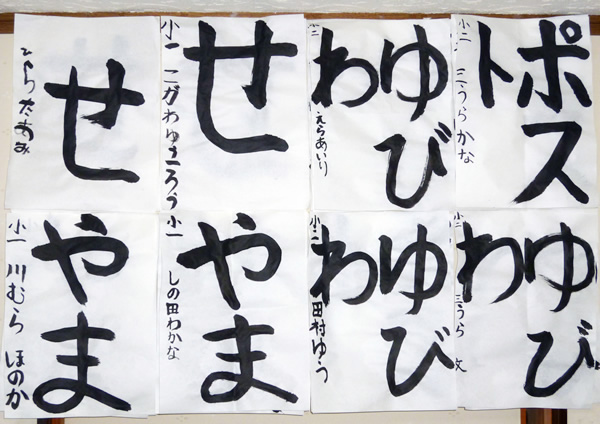 ポス
ト
小二 三うら かな
ゆび
わ
小二 えらあいり
せ
小一
せ
ゆび
わ
小二 三うら 文
ゆび
わ
小二 田村ゆう
やま
小一 しの田わかな
やま
小一 川むら ほのか